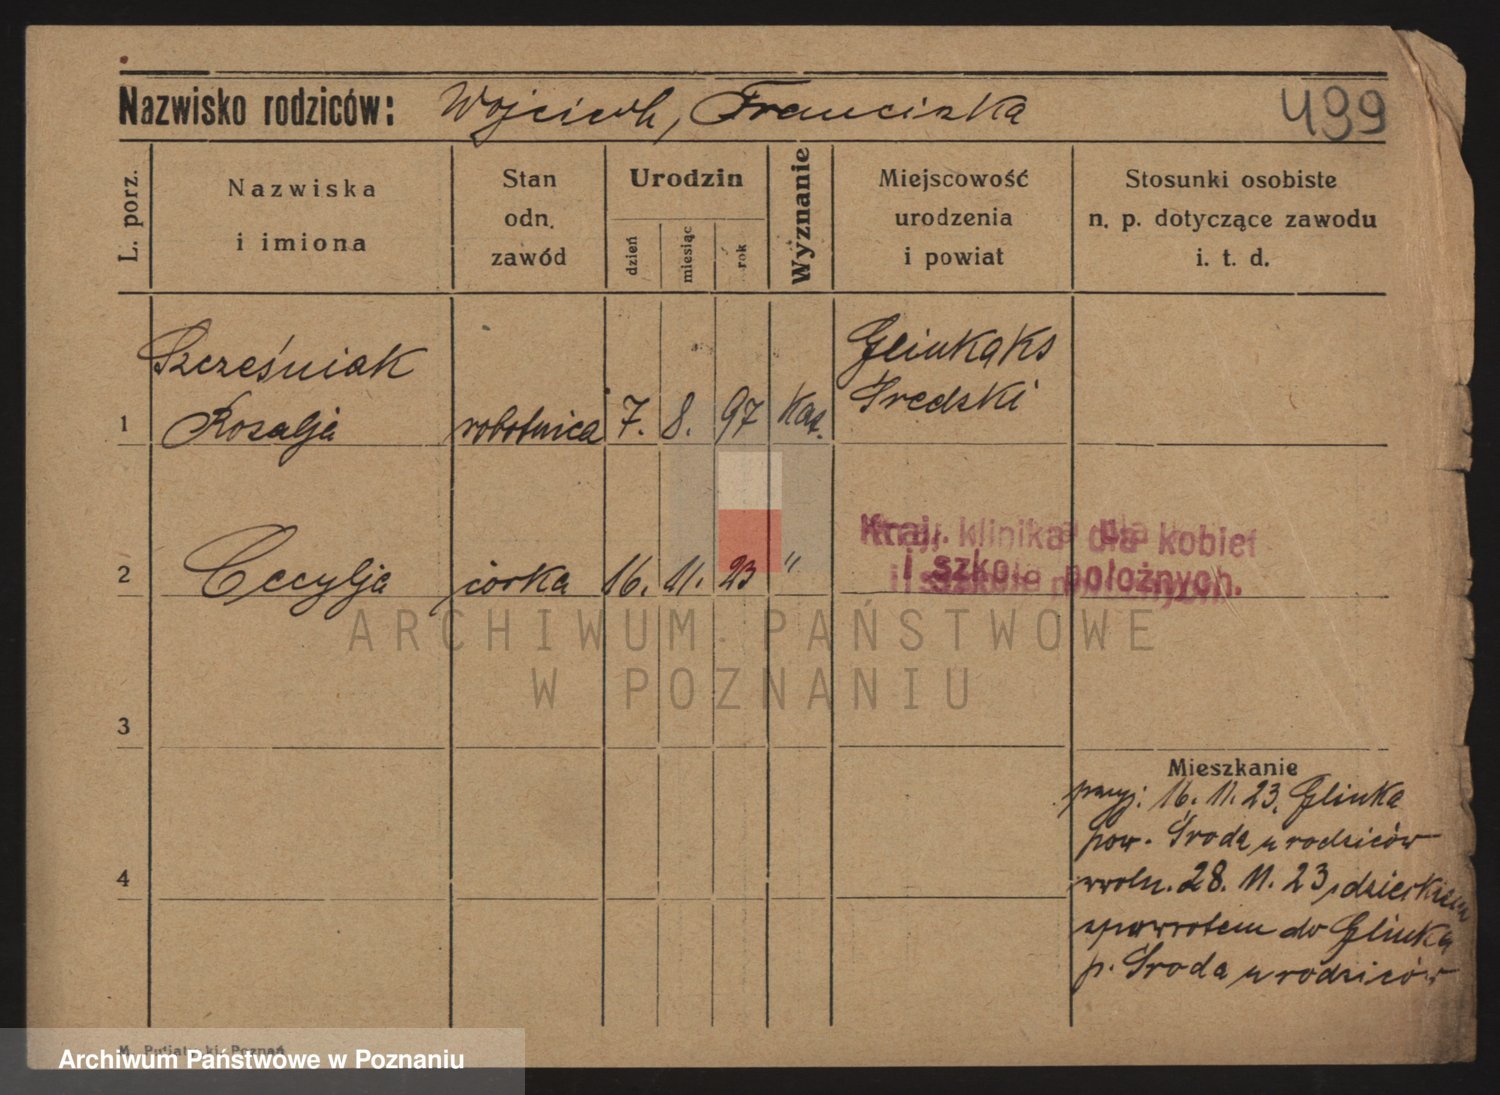 Nazwisko rodziców: Wojciech, Franciszka 499
L. porz.
Nazwiska
i imiona
Stan
odn.
zawód
Urodzin
dzień
miesiąc
rok
Wyznanie
Miejscowość
urodzenia
i powiat
Stosunki osobiste
n. p. dotyczące zawodu
i. t. d.
Szcześniak Glinka
1 Rosalja robotnica 7. 8. 97 Kat. Średski
2 Cecylja córka 16. 11. 23 "
Kraj. klinika dla kobiet
i szkoła położnych.
ARCHIWUM PAŃSTWOWE
W POZNANIU
3
Mieszkanie
przyj: 16. 11. 23. Glinka
pow. Środa u rodziców
4
zwoln. 28. 11. 23 dzieckiem
spowrotem do Glinka
p. Środa u rodziców
Poznań
Archiwum Państwowe w Poznaniu